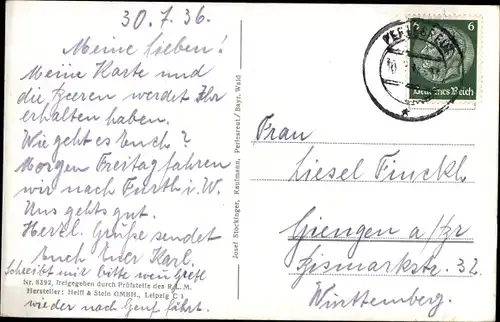 30.7.36.
Meine Lieben!
Meine Karte und
die Beeren werdet Ihr
erhalten haben.
Wie geht es Euch?
Morgen Freitag fahren
wir nach Furth i. W.
Uns gehts gut.
Herzl. Grüße sendet
Euch Euer Karl.
Schreibt mir bitte wenn Gretl
Nr. 8392, freigegeben durch Prüfstelle des R. L. M.
Hersteller: Helff & Stein GMBH., Leipzig C 1
wieder nach Genf fährt.
Josef Stockinger, Kaufmann, Perlesreut/Bayr. Wald
PERLESREUT
6
Deutsches Reich
Frau
Liesel Finckh
Giengen a/Brz
Bismarkstr. 32.
Württemberg.